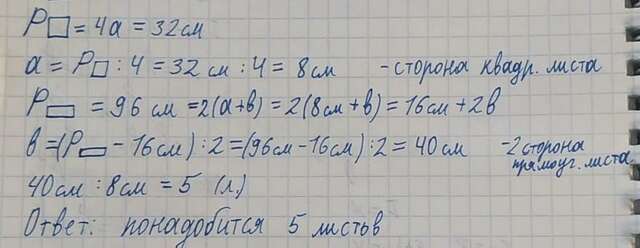 P□ = 4a = 32см
a = P□ : 4 = 32 см : 4 = 8см - сторона квадр. листа
P▭ = 96 см = 2(a+b) = 2(8см + b) = 16см + 2b
b = (P▭ - 16см) : 2 = (96см - 16см) : 2 = 40 см - 2 сторона прямоуг. листа
40см : 8см = 5 (л)
Ответ: понадобится 5 листов